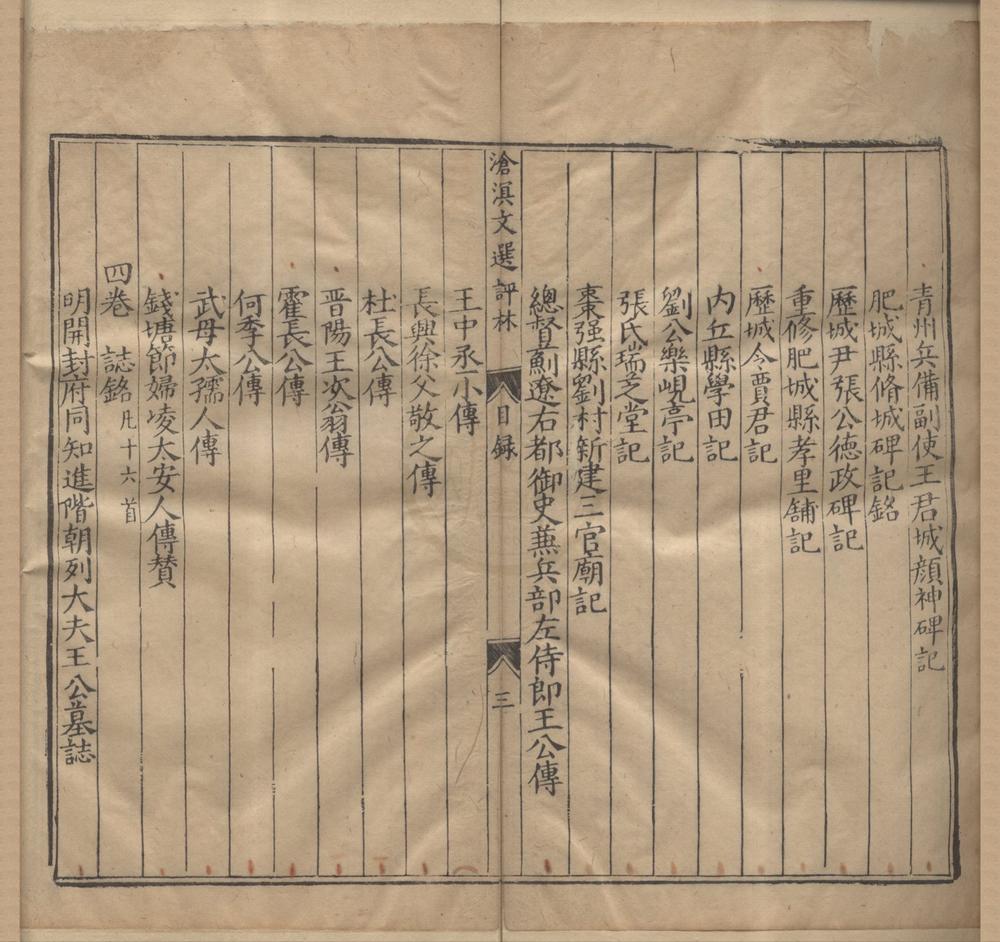 青州兵備副使王君城顔神碑記
肥城縣脩城碑記銘
歷城尹張公德政碑記
重修肥城縣孝里舖記
歷城令賈君記
内丘縣學田記
劉公樂峴亭記
張氏瑞芝堂記
棗强縣劉村新建三官廟記
總督薊遼右都御史蕪兵部左侍郎王公傳
滄溟文選評林
目録
三
王中丞小傳
長興徐父敬之傳
杜長公傳
晋陽王次翁傳
霍長公傳
何季公傳
武母太孺人傳
錢塘節婦凌太安人傳賛
四卷 誌銘凡十六首
明開封府同知進階朝列大夫王公墓誌